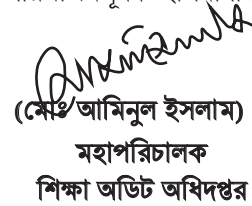 (মোঃ আমিনুল ইসলাম)
মহাপরিচালক
শিক্ষা অডিট অধিদপ্তর